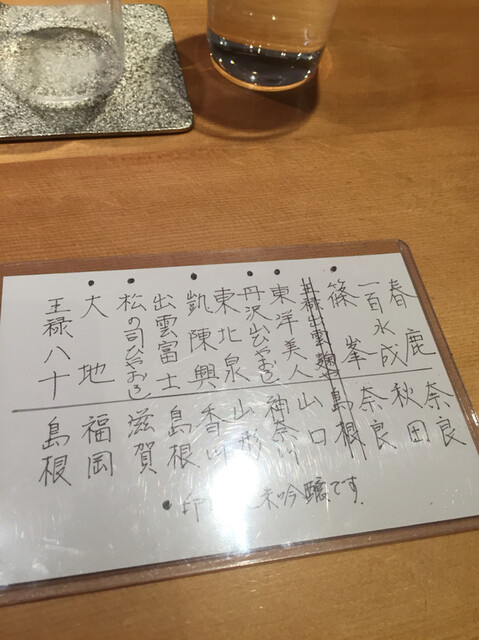 春鹿 奈良
一百水成 秋田
●篠峯 奈良
出雲 島根
●東洋美人 山口
●丹沢山ひやおろし 神奈川
東北泉 山形
●凱陳興 香川
出雲富士 島根
●松の司ひやおろし 滋賀
●大地 福岡
王禄八十 島根
●印 吟醸です.